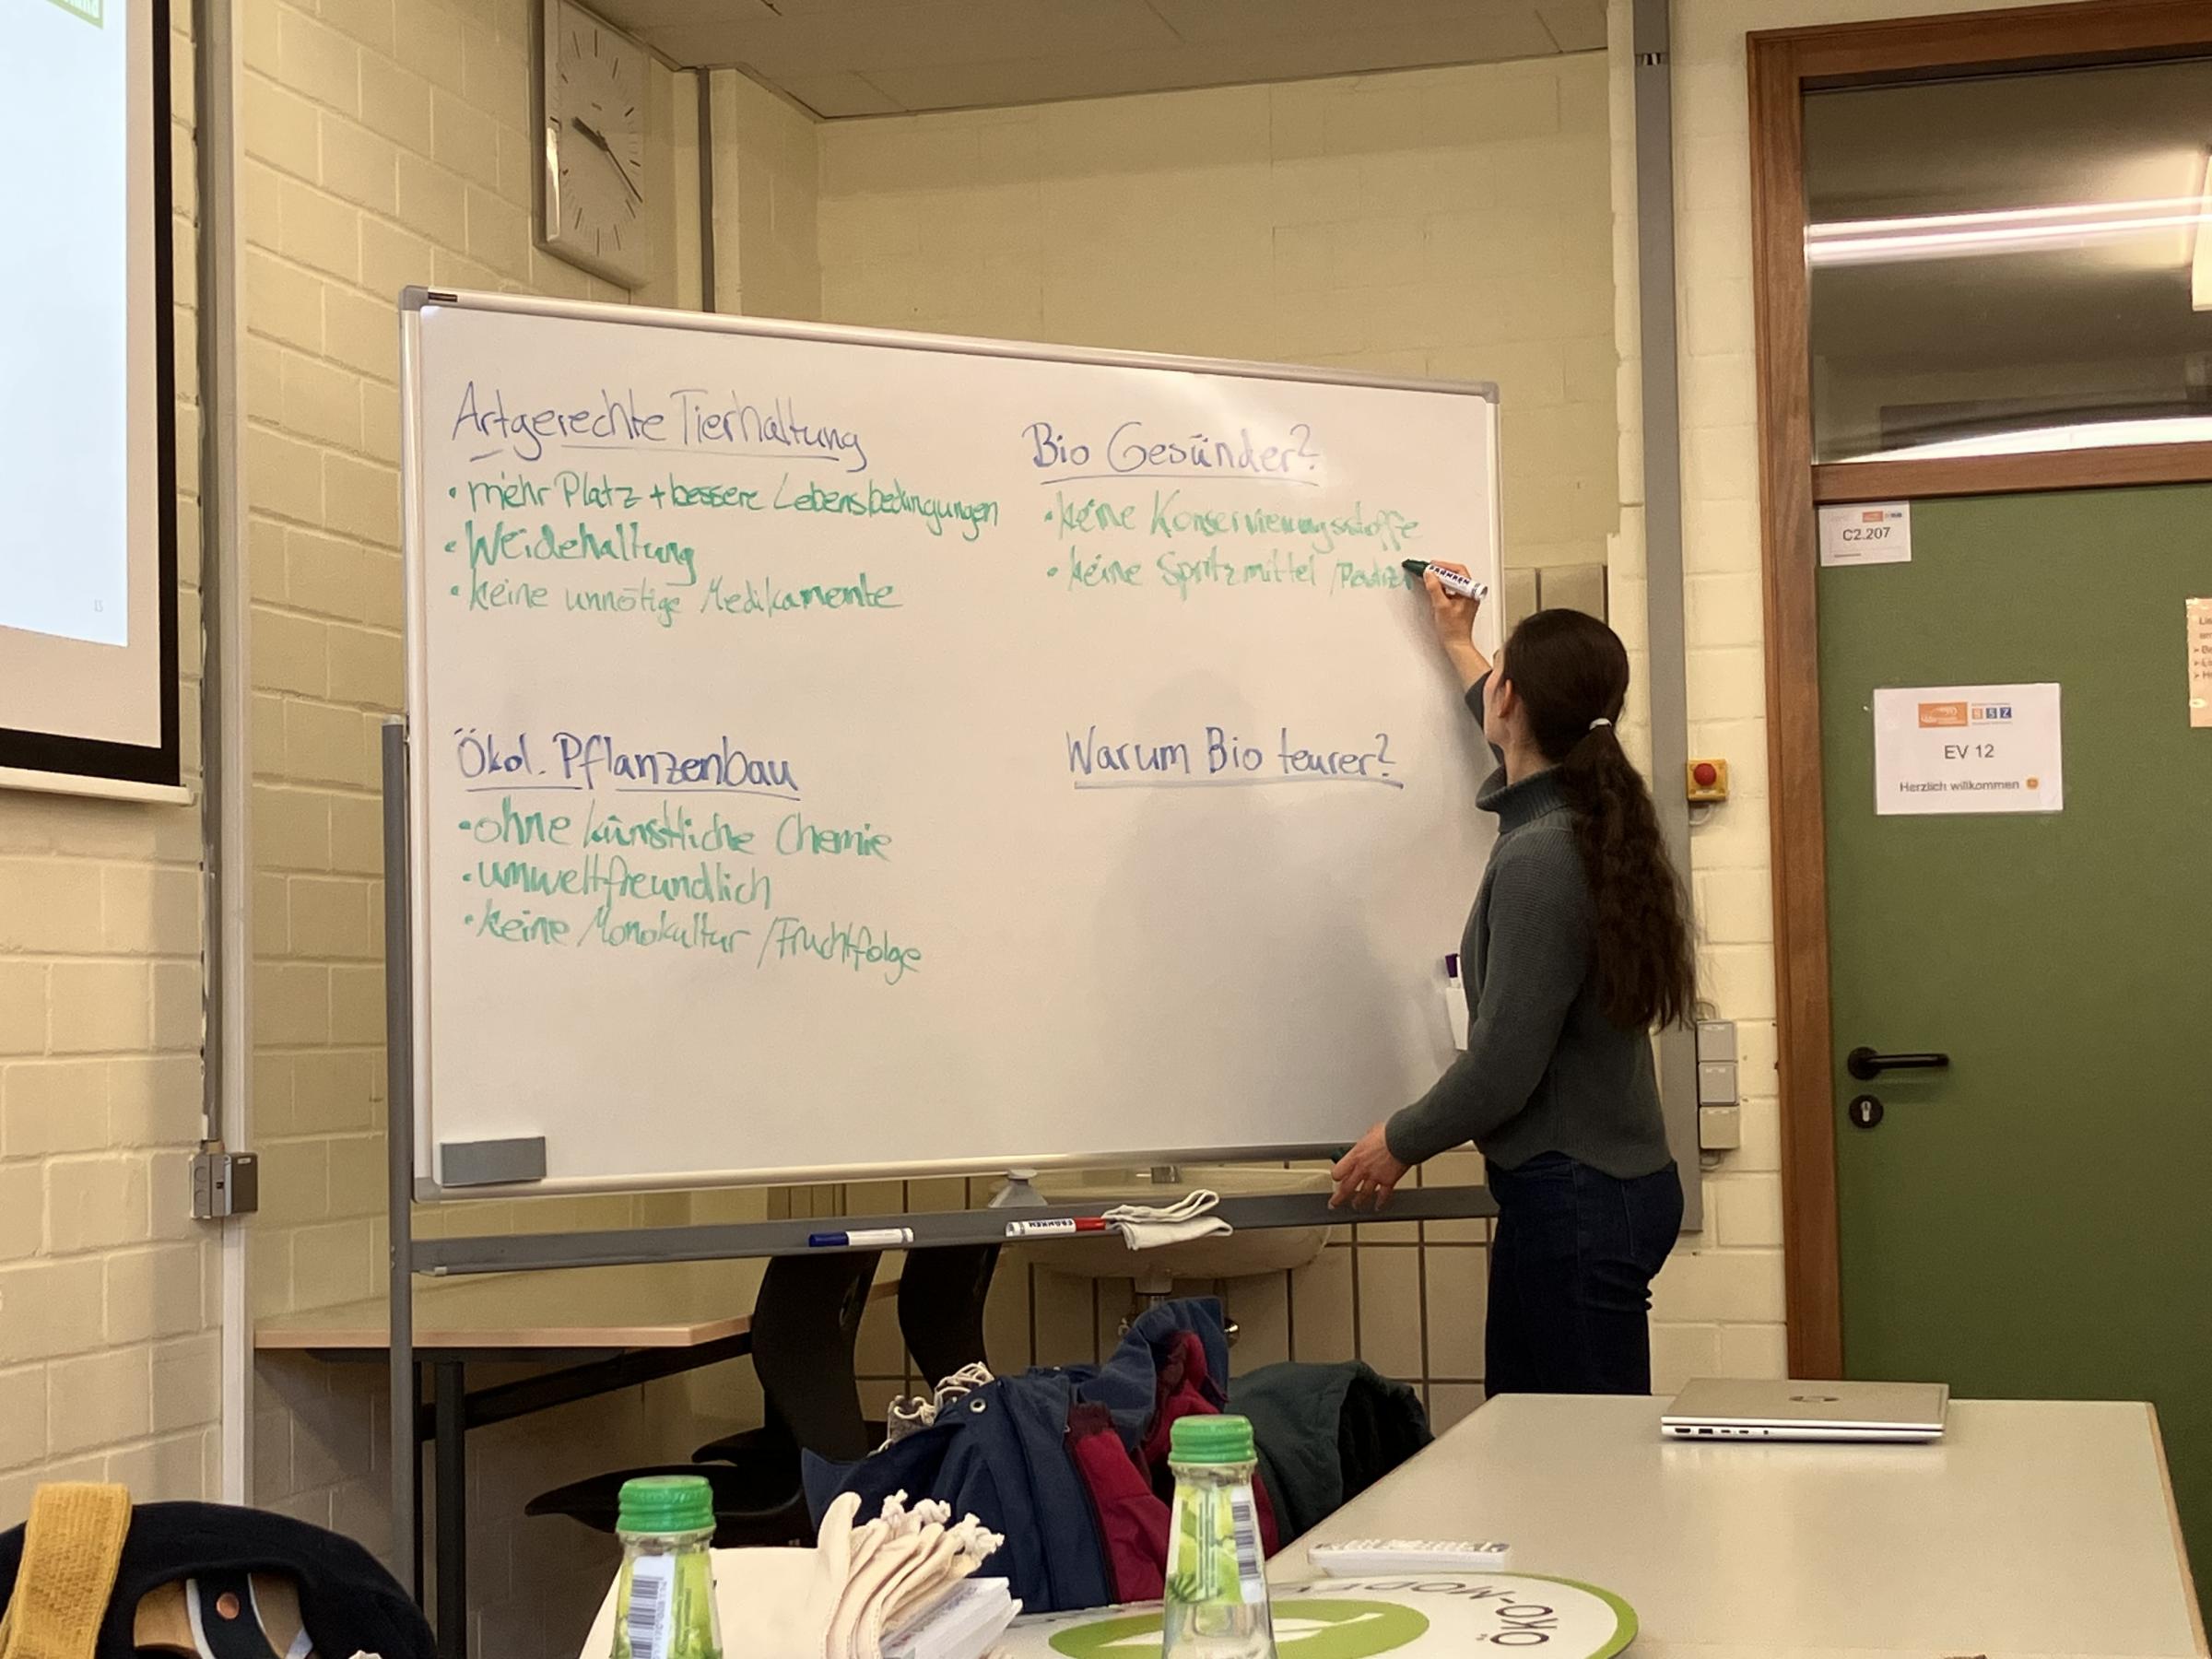 Artgerechte Tierhaltung
• mehr Platz + bessere Lebensbedingungen
• Weidehaltung
• keine unnötige Medikamente
Bio Gesünder?
• keine Konservierungsstoffe
• keine Spritzmittel /
Ökol. Pflanzenbau
• ohne künstliche Chemie
• umweltfreundlich
• keine Monokultur / Fruchtfolge
Warum Bio teurer?
C2.207
BSZ
EV 12
Herzlich willkommen
13
ÖKO-MODE